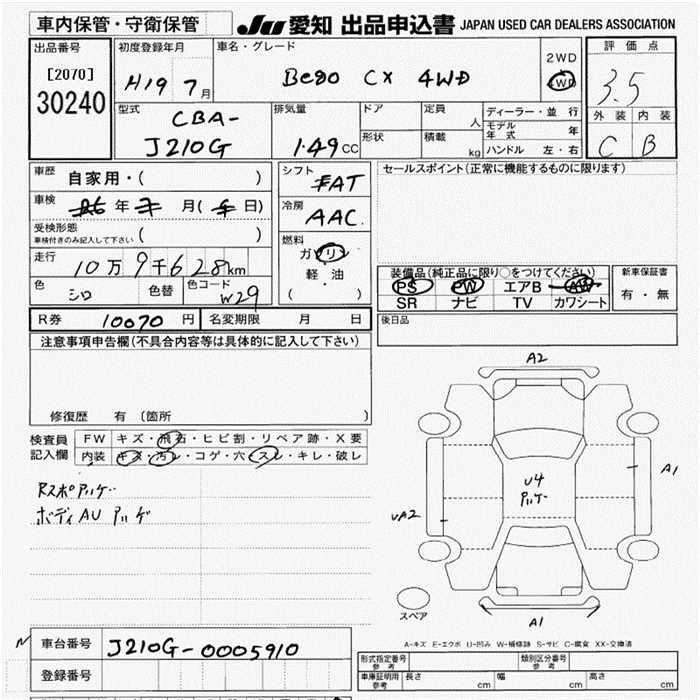 車内保管・守衛保管
JU 愛知 出品申込書 JAPAN USED CAR DEALERS ASSOCIATION
出品番号
[2070]
30240
初度登録年月
H19 7月
車名・グレード
Bego CX 4WD
2WD
4WD
評価点
3.5
外装 内装
C B
型式
CBA-
J210G
排気量
1.49cc
ドア
形状
定員
人
積載
kg
ディーラー・並行
モデル年式 年
ハンドル 左・右
車歴 自家用・( )
車検 年 月( 日)
受検形態
車検付きのみ記入して下さい ( )
走行 10万9千628km
色 シロ 色替 色コード W29
シフト
FAT
冷房
AAC
燃料
ガソリン
軽・油
( )
セールスポイント(正常に機能するものに限ります)
装備品(純正品に限り○をつけてください)
PS PW エアB AW
SR ナビ TV カワシート
新車保証書
有・無
R券 10070円 名変期限 月 日
後日品
注意事項申告欄(不具合内容等は具体的に記入して下さい)
修復歴 有 〔箇所 〕
検査員
記入欄
FW キズ・飛石・ヒビ割・リペア跡・X要
内装 キズ・汚レ・コゲ・穴・スレ・キレ・破レ
ボディAU アリゲ
A2
U4
A1
UA2
スペア
A1
A-キズ E-エクボ U-凹み W-補修跡 S-サビ C-腐食 XX-交換済
N 車台番号 J210G-0005910
登録番号
形式指定番号
参考
類別区分番号
参考
車庫証明用
参考
長さ cm 幅 cm 高さ cm